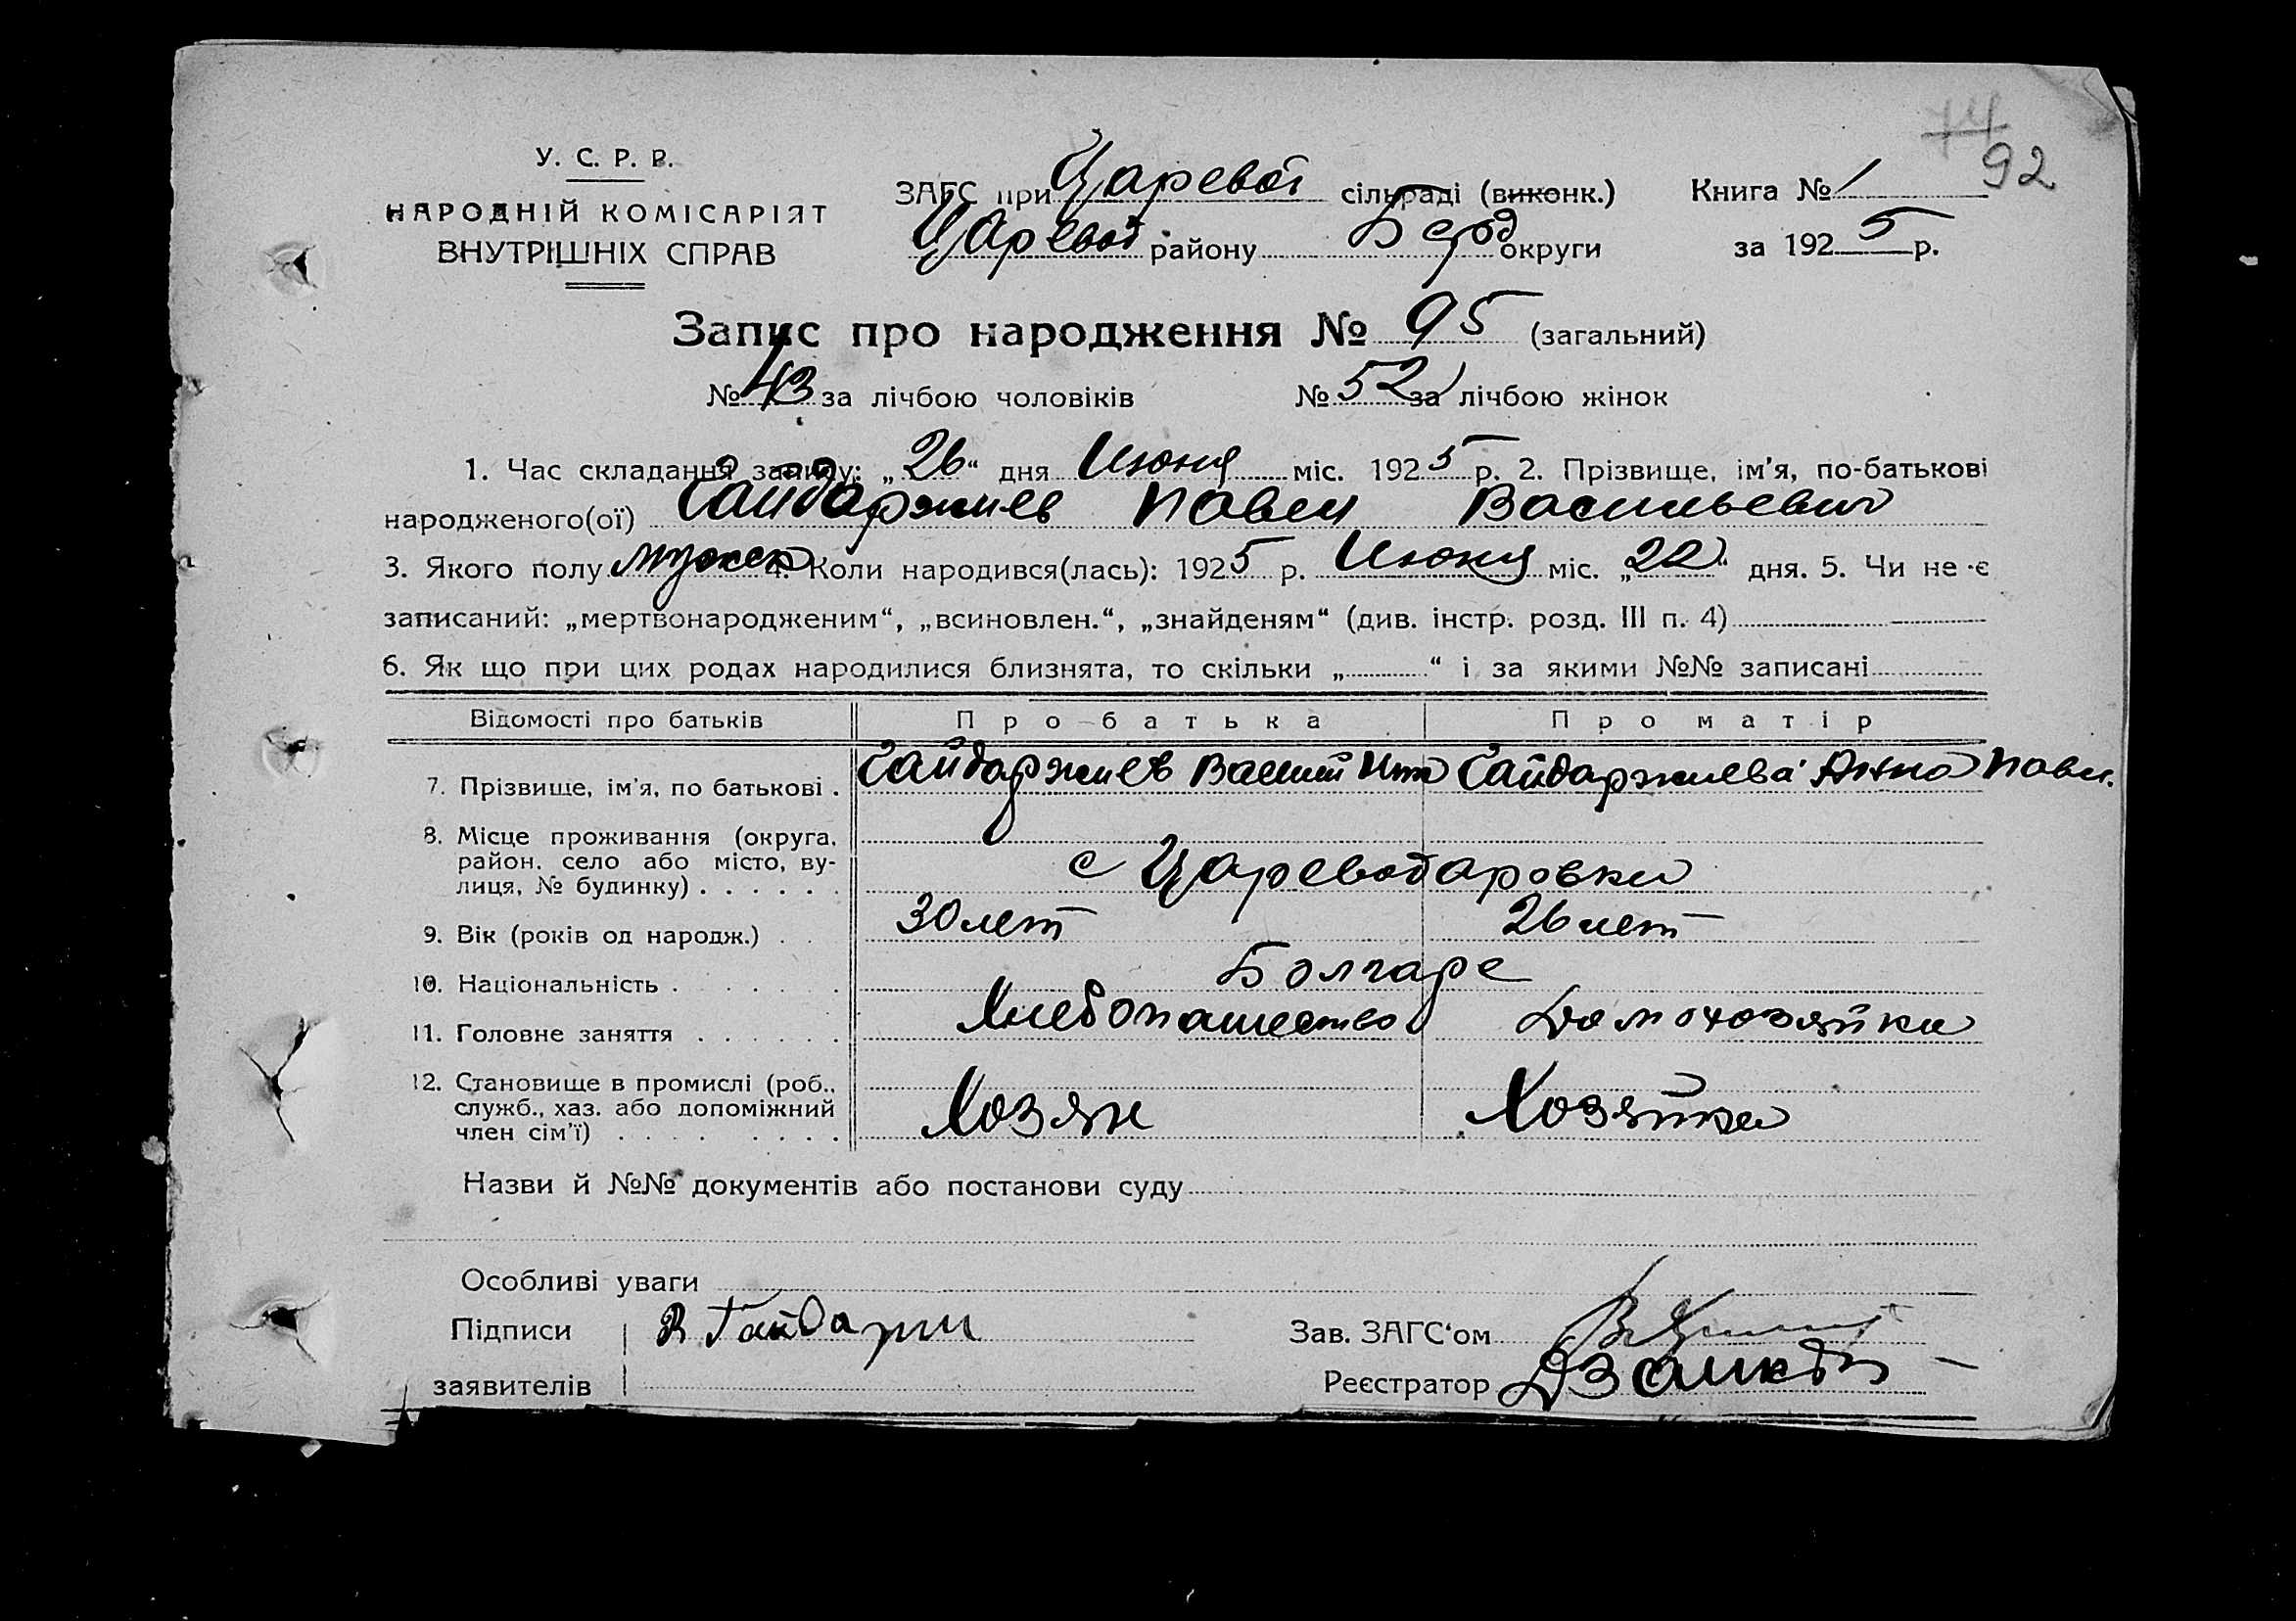 74
92
У. С. Р. Р.
НАРОДНІЙ КОМІСАРІЯТ
ВНУТРІШНІХ СПРАВ
ЗАГС при Царевой сільраді (виконк.) Книга № 1
Царевод району Берд округи за 1925 р.
Запис про народження № 95 (загальний)
№ 43 за лічбою чоловіків № 52 за лічбою жінок
1. Час складання запису: „26“ дня Июня міс. 1925 р. 2. Прізвище, ім’я, по-батькові
народженого(ої) Гайдаржиев Павел Васильевич
3. Якого полу мужск 4. Коли народився(лась): 1925 р. Июня міс. „22“ дня. 5. Чи не є
записаний: „мертвонародженим“, „всиновлен.“, „знайденям“ (див. інстр. розд. III п. 4)
6. Як що при цих родах народилися близнята, то скільки „ “ і за якими №№ записані
Відомості про батьків Про батька Про матір
7. Прізвище, ім’я, по батькові . Гайдаржиев Василий Гайдаржиева Анна Павл.
8. Місце проживання (округа,
район, село або місто, ву-
лиця, № будинку) . . . . . . с Цареводаровки
9. Вік (років од народж.) . . 30 лет 26 лет
10. Національність . . . . . . Болгаре
11. Головне заняття . . . . . . Хлебопашество Домохозяйка
12. Становище в промислі (роб.,
служб., хаз. або допоміжний
член сім’ї) . . . . . . . . Хозян Хозяйка
Назви й №№ документів або постанови суду
Особливі уваги
Підписи В Гайдаржи Зав. ЗАГС‘ом
заявителів Реєстратор